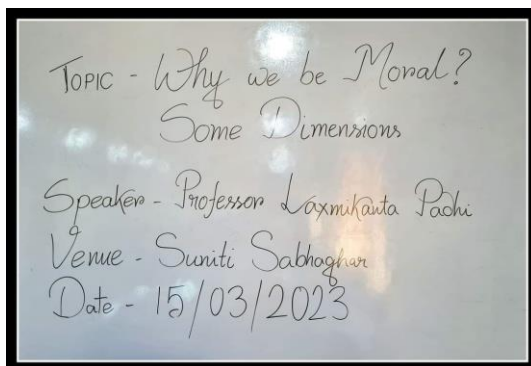 TOPIC - Why we be Moral?
Some Dimensions
Speaker - Professor Laxmikanta Padhi
Venue - Suniti Sabhaghar
Date - 15/03/2023